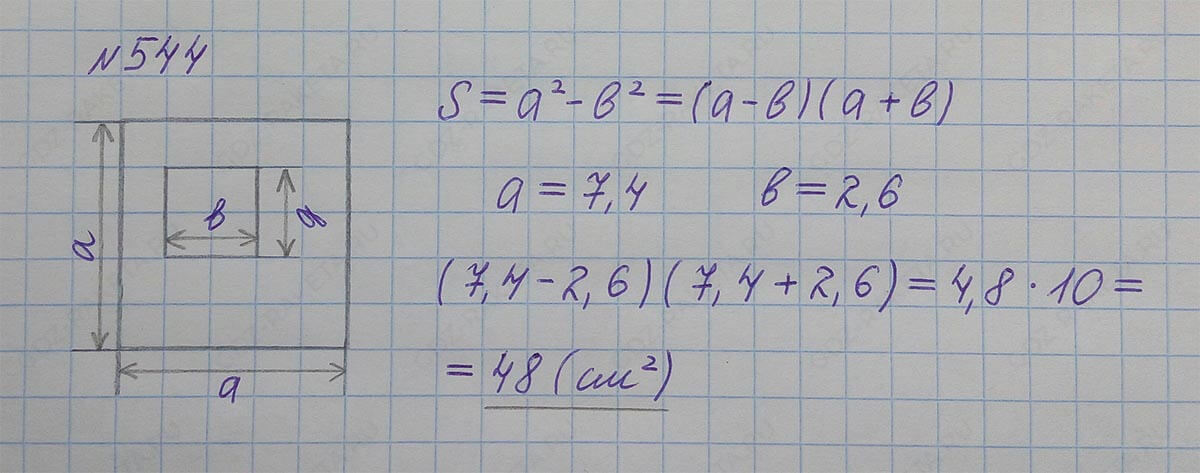 №544
S = a² - в² = (a - в)(a + в)
a = 7,4 в = 2,6
(7,4 - 2,6)(7,4 + 2,6) = 4,8 · 10 =
= 48 (см²)
a
в
в
a